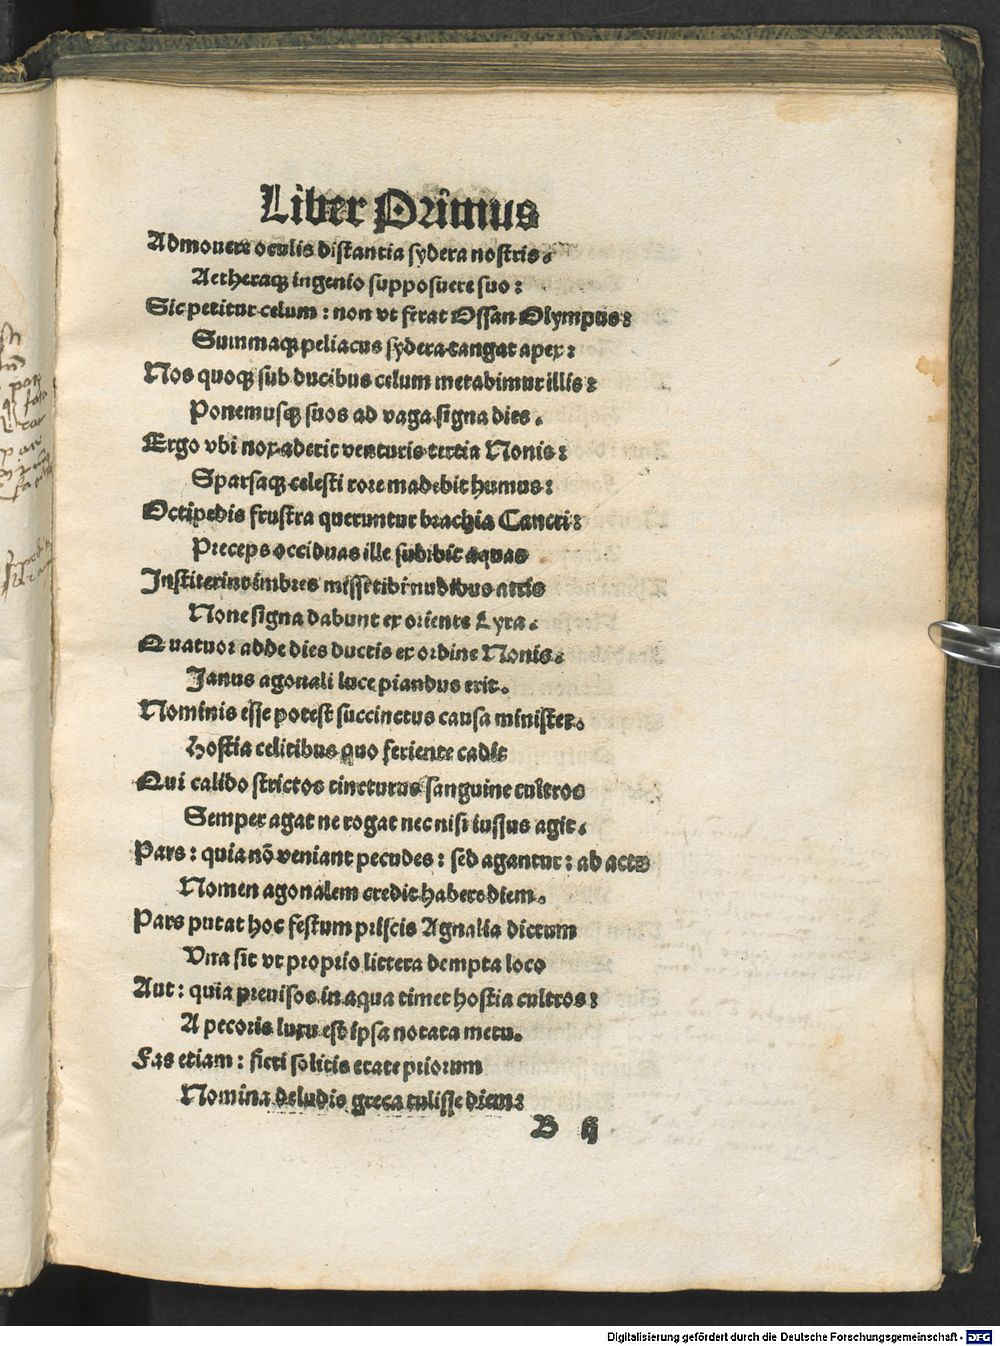 Liber Primus
Admouere oculis distantia sydera nostris.
Aetheraqꝫ ingenio supposuere suo:
Sic petitur celum: non vt ferat Ossan Olympus:
Summaqꝫ peliacus sydera tangat apex:
Nos quoqꝫ sub ducibus celum metabimur illis:
Ponemusqꝫ suos ad vaga signa dies.
Ergo vbi nox aderit venturis tertia Nonis:
Sparsaqꝫ celesti rore madebit humus:
Octipedis frustra queruntur brachia Cancri:
Preceps occiduas ille subibit aquas
Institerint imbres missi tibi nudibus atris
None signa dabunt ex oriente Lyra.
Quatuor adde dies ductis ex ordine Nonis.
Janus agonali luce piandus erit.
Nominis esse potest succinctus causa minister.
Hostia celitibus quo feriente cadit
Qui calido strictos tincturus sanguine cultros
Semper agat ne rogat nec nisi iussus agit.
Pars: quia nō veniant pecudes: sed agantur: ab actu
Nomen agonalem credit habere diem.
Pars putat hoc festum priscis Agnalia dictum
Vna sit vt proprio littera dempta loco
Aut: quia previsos in aqua timet hostia cultros:
A pecoris luxu est ipsa notata metu.
Fas etiam: fieri solitis etate priorum
Nomina deludis greca tulisse diem:
B ij
Digitalisierung gefördert durch die Deutsche Forschungsgemeinschaft - DFG